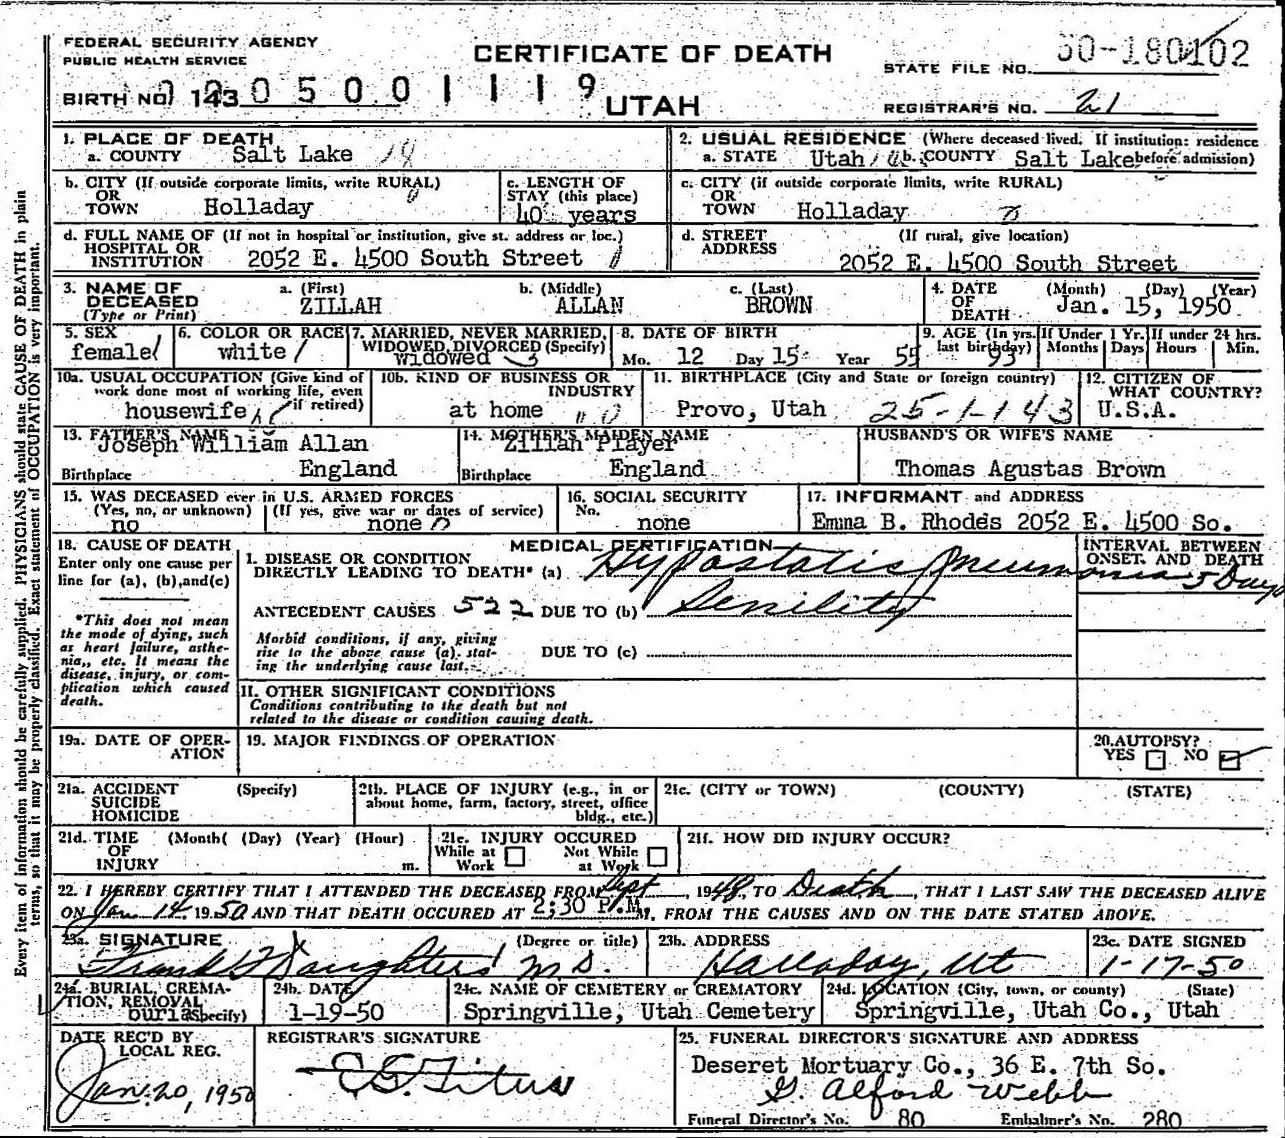 FEDERAL SECURITY AGENCY
PUBLIC HEALTH SERVICE
CERTIFICATE OF DEATH
STATE FILE NO. 50-180102
BIRTH NO. 143 0 5 0 0 1 1 1 9
UTAH
REGISTRAR'S NO. 21
1. PLACE OF DEATH
a. COUNTY Salt Lake 18
2. USUAL RESIDENCE (Where deceased lived. If institution: residence
a. STATE Utah b. COUNTY Salt Lake before admission)
b. CITY (If outside corporate limits, write RURAL)
OR
TOWN Holladay
c. LENGTH OF
STAY (this place)
40 years
c. CITY (if outside corporate limits, write RURAL)
OR
TOWN Holladay
d. FULL NAME OF (If not in hospital or institution, give st. address or loc.)
HOSPITAL OR
INSTITUTION 2052 E. 4500 South Street
d. STREET (If rural, give location)
ADDRESS
2052 E. 4500 South Street
3. NAME OF a. (First) b. (Middle) c. (Last)
DECEASED ZILLAH ALLAN BROWN
(Type or Print)
4. DATE (Month) (Day) (Year)
OF
DEATH Jan. 15, 1950
5. SEX
female
6. COLOR OR RACE
white
7. MARRIED, NEVER MARRIED,
WIDOWED, DIVORCED (Specify)
widowed
8. DATE OF BIRTH
Mo. 12 Day 15 Year 55
9. AGE (In yrs.
last birthday)
93
If Under 1 Yr.
Months Days
If under 24 hrs.
Hours Min.
10a. USUAL OCCUPATION (Give kind of
work done most of working life, even
if retired)
housewife
10b. KIND OF BUSINESS OR
INDUSTRY
at home
11. BIRTHPLACE (City and State or foreign country)
Provo, Utah 25-1-143
12. CITIZEN OF
WHAT COUNTRY?
U.S.A.
13. FATHER'S NAME
Joseph William Allan
Birthplace England
14. MOTHER'S MAIDEN NAME
Zillah Player
Birthplace England
HUSBAND'S OR WIFE'S NAME
Thomas Agustas Brown
15. WAS DECEASED ever in U.S. ARMED FORCES
(Yes, no, or unknown) (If yes, give war or dates of service)
no none
16. SOCIAL SECURITY
No.
none
17. INFORMANT and ADDRESS
Emma B. Rhodes 2052 E. 4500 So.
18. CAUSE OF DEATH
Enter only one cause per
line for (a), (b), and (c)
*This does not mean
the mode of dying, such
as heart failure, asthe-
nia,, etc. It means the
disease, injury, or com-
plication which caused
death.
MEDICAL CERTIFICATION
I. DISEASE OR CONDITION
DIRECTLY LEADING TO DEATH* (a) Hypostatis Pneumonia
ANTECEDENT CAUSES 522 DUE TO (b) Senility
Morbid conditions, if any, giving
rise to the above cause (a), stat-
ing the underlying cause last.
DUE TO (c)
INTERVAL BETWEEN
ONSET. AND DEATH
5 Days
II. OTHER SIGNIFICANT CONDITIONS
Conditions contributing to the death but not
related to the disease or condition causing death.
19a. DATE OF OPER-
ATION
19. MAJOR FINDINGS OF OPERATION
20. AUTOPSY?
YES NO
21a. ACCIDENT (Specify)
SUICIDE
HOMICIDE
21b. PLACE OF INJURY (e.g., in or
about home, farm, factory, street, office
bldg., etc.)
21c. (CITY or TOWN) (COUNTY) (STATE)
21d. TIME (Month( (Day) (Year) (Hour)
OF
INJURY m.
21e. INJURY OCCURED
While at Not While
Work at Work
21f. HOW DID INJURY OCCUR?
22. I HEREBY CERTIFY THAT I ATTENDED THE DECEASED FROM Sept, 1948, TO Death, THAT I LAST SAW THE DECEASED ALIVE
ON Jan 14 1950 AND THAT DEATH OCCURED AT 2:30 P.M. M. FROM THE CAUSES AND ON THE DATE STATED ABOVE.
23a. SIGNATURE (Degree or title)
Frank Daughters M.D.
23b. ADDRESS
Halladay, Ut
23c. DATE SIGNED
1-17-50
24a. BURIAL, CREMA-
TION, REMOVAL
(Specify)
burial
24b. DATE
1-19-50
24c. NAME OF CEMETERY or CREMATORY
Springville, Utah Cemetery
24d. LOCATION (City, town, or county) (State)
Springville, Utah Co., Utah
DATE REC'D BY
LOCAL REG.
Jan. 20, 1950
REGISTRAR'S SIGNATURE
E G Titus
25. FUNERAL DIRECTOR'S SIGNATURE AND ADDRESS
Deseret Mortuary Co., 36 E. 7th So.
G. Alford Webb
Funeral Director's No. 80 Embalmer's No. 280
Every item of information should be carefully supplied. PHYSICIANS should state CAUSE OF DEATH in plain
terms, so that it may be properly classified. Exact statement of OCCUPATION is very important.